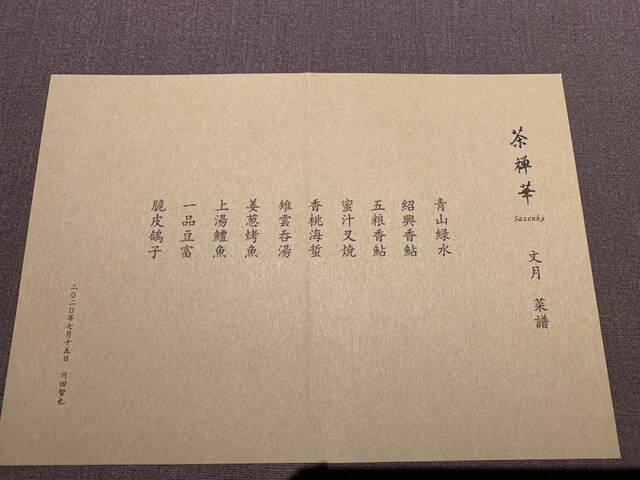 茶禅華
Sazenka
文月 菜譜
青山緑水
紹興香鮎
五粮香鮎
蜜汁叉焼
香桃海蜇
雉雲呑湯
姜葱烤魚
上湯鱧魚
一品豆富
脆皮鴿子
二〇二〇年七月十五日 川田智也